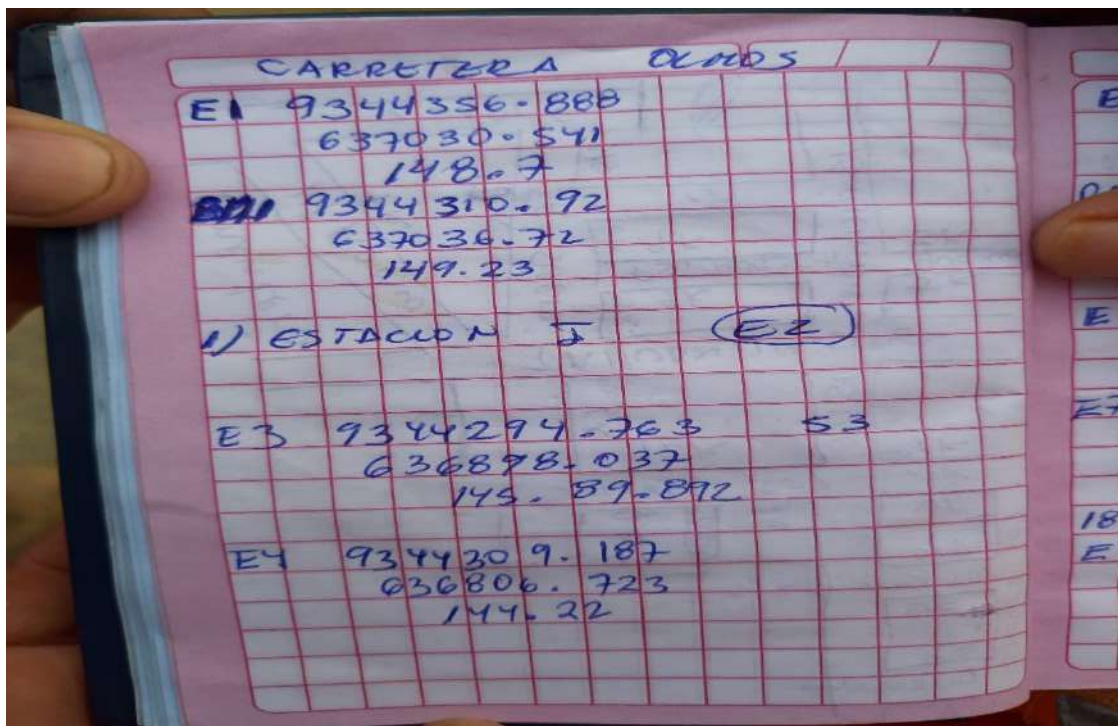 CARRETERA OLMOS
E1 9344356.888
637030.541
148.7
9344310.92
637036.72
149.23
1) ESTACION I E2
E3 9344294.763 53
636898.037
145.89.892
E4 9344309.187
636806.723
144.22
E
E
E
18
E